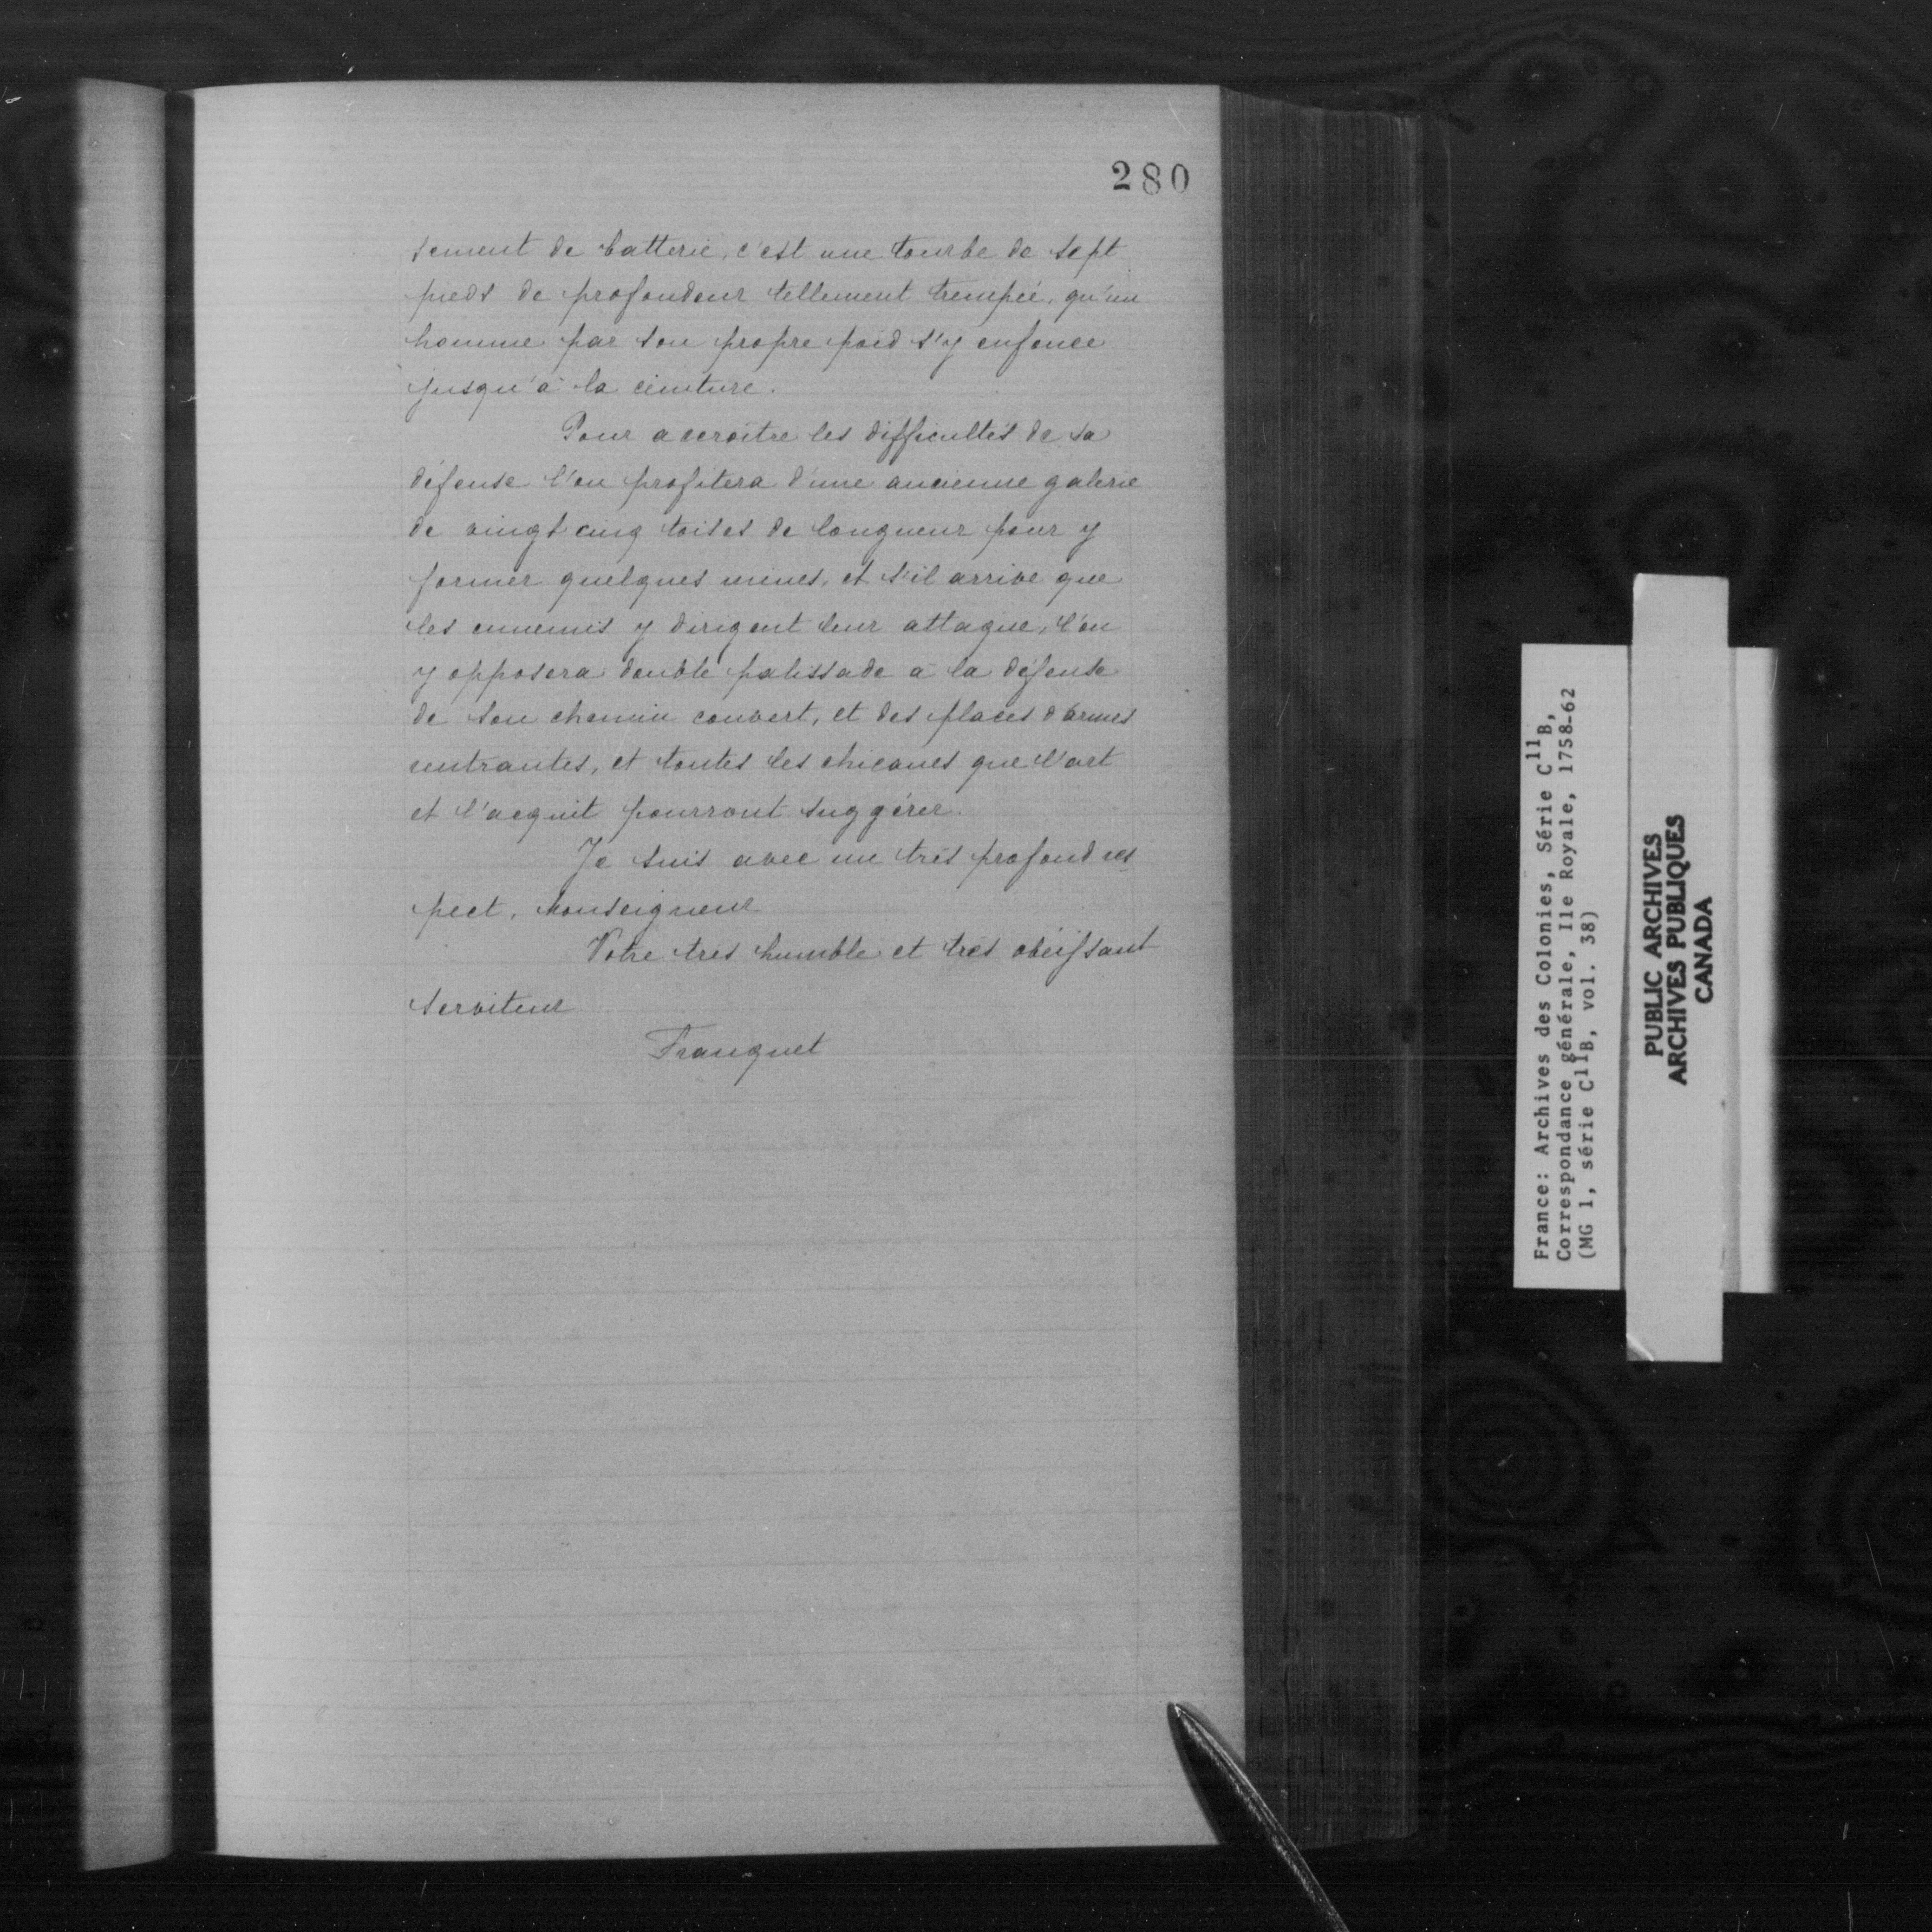 280
sement de batterie, c'est une tourbe de sept
pieds de profondeur tellement trempée, qu'un
homme par son propre poid s'y enfonce
jusqu'à la ceinture.
Pour accroître les difficultés de sa
défense l'on profitera d'une ancienne galerie
de vingt cinq toises de longueur pour y
former quelques mines, et s'il arrive que
les ennemis y dirigent leur attaque, l'on
y opposera double palissade à la défense
de son chemin couvert, et des places d'armes
rentrantes, et toutes les chicanes que l'art
et l'acquit pourront suggérer.
Je suis avec un très profond res
pect, Monseigneur
Votre très humble et très obéissant
serviteur
Franquet
France: Archives des Colonies, Série C11B,
Correspondance générale, Ile Royale, 1758-62
(MG 1, série C11B, vol. 38)
PUBLIC ARCHIVES
ARCHIVES PUBLIQUES
CANADA